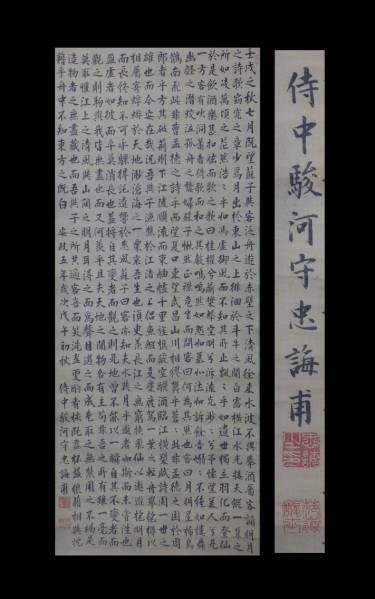 侍中駿河守忠誨甫
壬戌之秋七月既望蘇子與客泛舟遊於赤壁之下清風徐來水波不興舉酒屬客誦明月
之詩歌窈窕之章少焉月出於東山之上徘徊於斗牛之間白露橫江水光接天縱一葦之
所如凌萬頃之茫然浩浩乎如馮虛御風而不知其所止飄飄乎如遺世獨立羽化而登仙
於是飲酒樂甚扣舷而歌之歌曰桂櫂兮蘭槳擊空明兮泝流光渺渺兮予懷望美人兮天
一方客有吹洞簫者倚歌而和之其聲嗚嗚然如怨如慕如泣如訴餘音嫋嫋不絕如縷舞
幽壑之潛蛟泣孤舟之嫠婦蘇子愀然正襟危坐而問客曰何為其然也客曰月明星稀烏
鵲南飛此非曹孟德之詩乎西望夏口東望武昌山川相繆鬱乎蒼蒼此非孟德之困於周
郎者乎方其破荊州下江陵順流而東也舳艫千里旌旗蔽空釃酒臨江橫槊賦詩固一世之
雄也而今安在哉況吾與子漁樵於江渚之上侶魚蝦而友麋鹿駕一葉之扁舟舉匏樽以
相屬寄蜉蝣於天地渺滄海之一粟哀吾生之須臾羨長江之無窮挾飛仙以遨遊抱明月
而長終知不可乎驟得託遺響於悲風蘇子曰客亦知夫水與月乎逝者如斯而未嘗往也
盈虛者如彼而卒莫消長也蓋將自其變者而觀之則天地曾不能以一瞬自其不變者而
觀之則物與我皆無盡也而又何羨乎且夫天地之間物各有主苟非吾之所有雖一毫而
莫取惟江上之清風與山間之明月耳得之而為聲目遇之而成色取之無禁用之不竭是
造物者之無盡藏也而吾與子之所共適客喜而笑洗盞更酌肴核既盡杯盤狼籍相與枕
藉乎舟中不知東方之既白 安政五年歲次戊午初秋 侍中駿河守忠誨甫